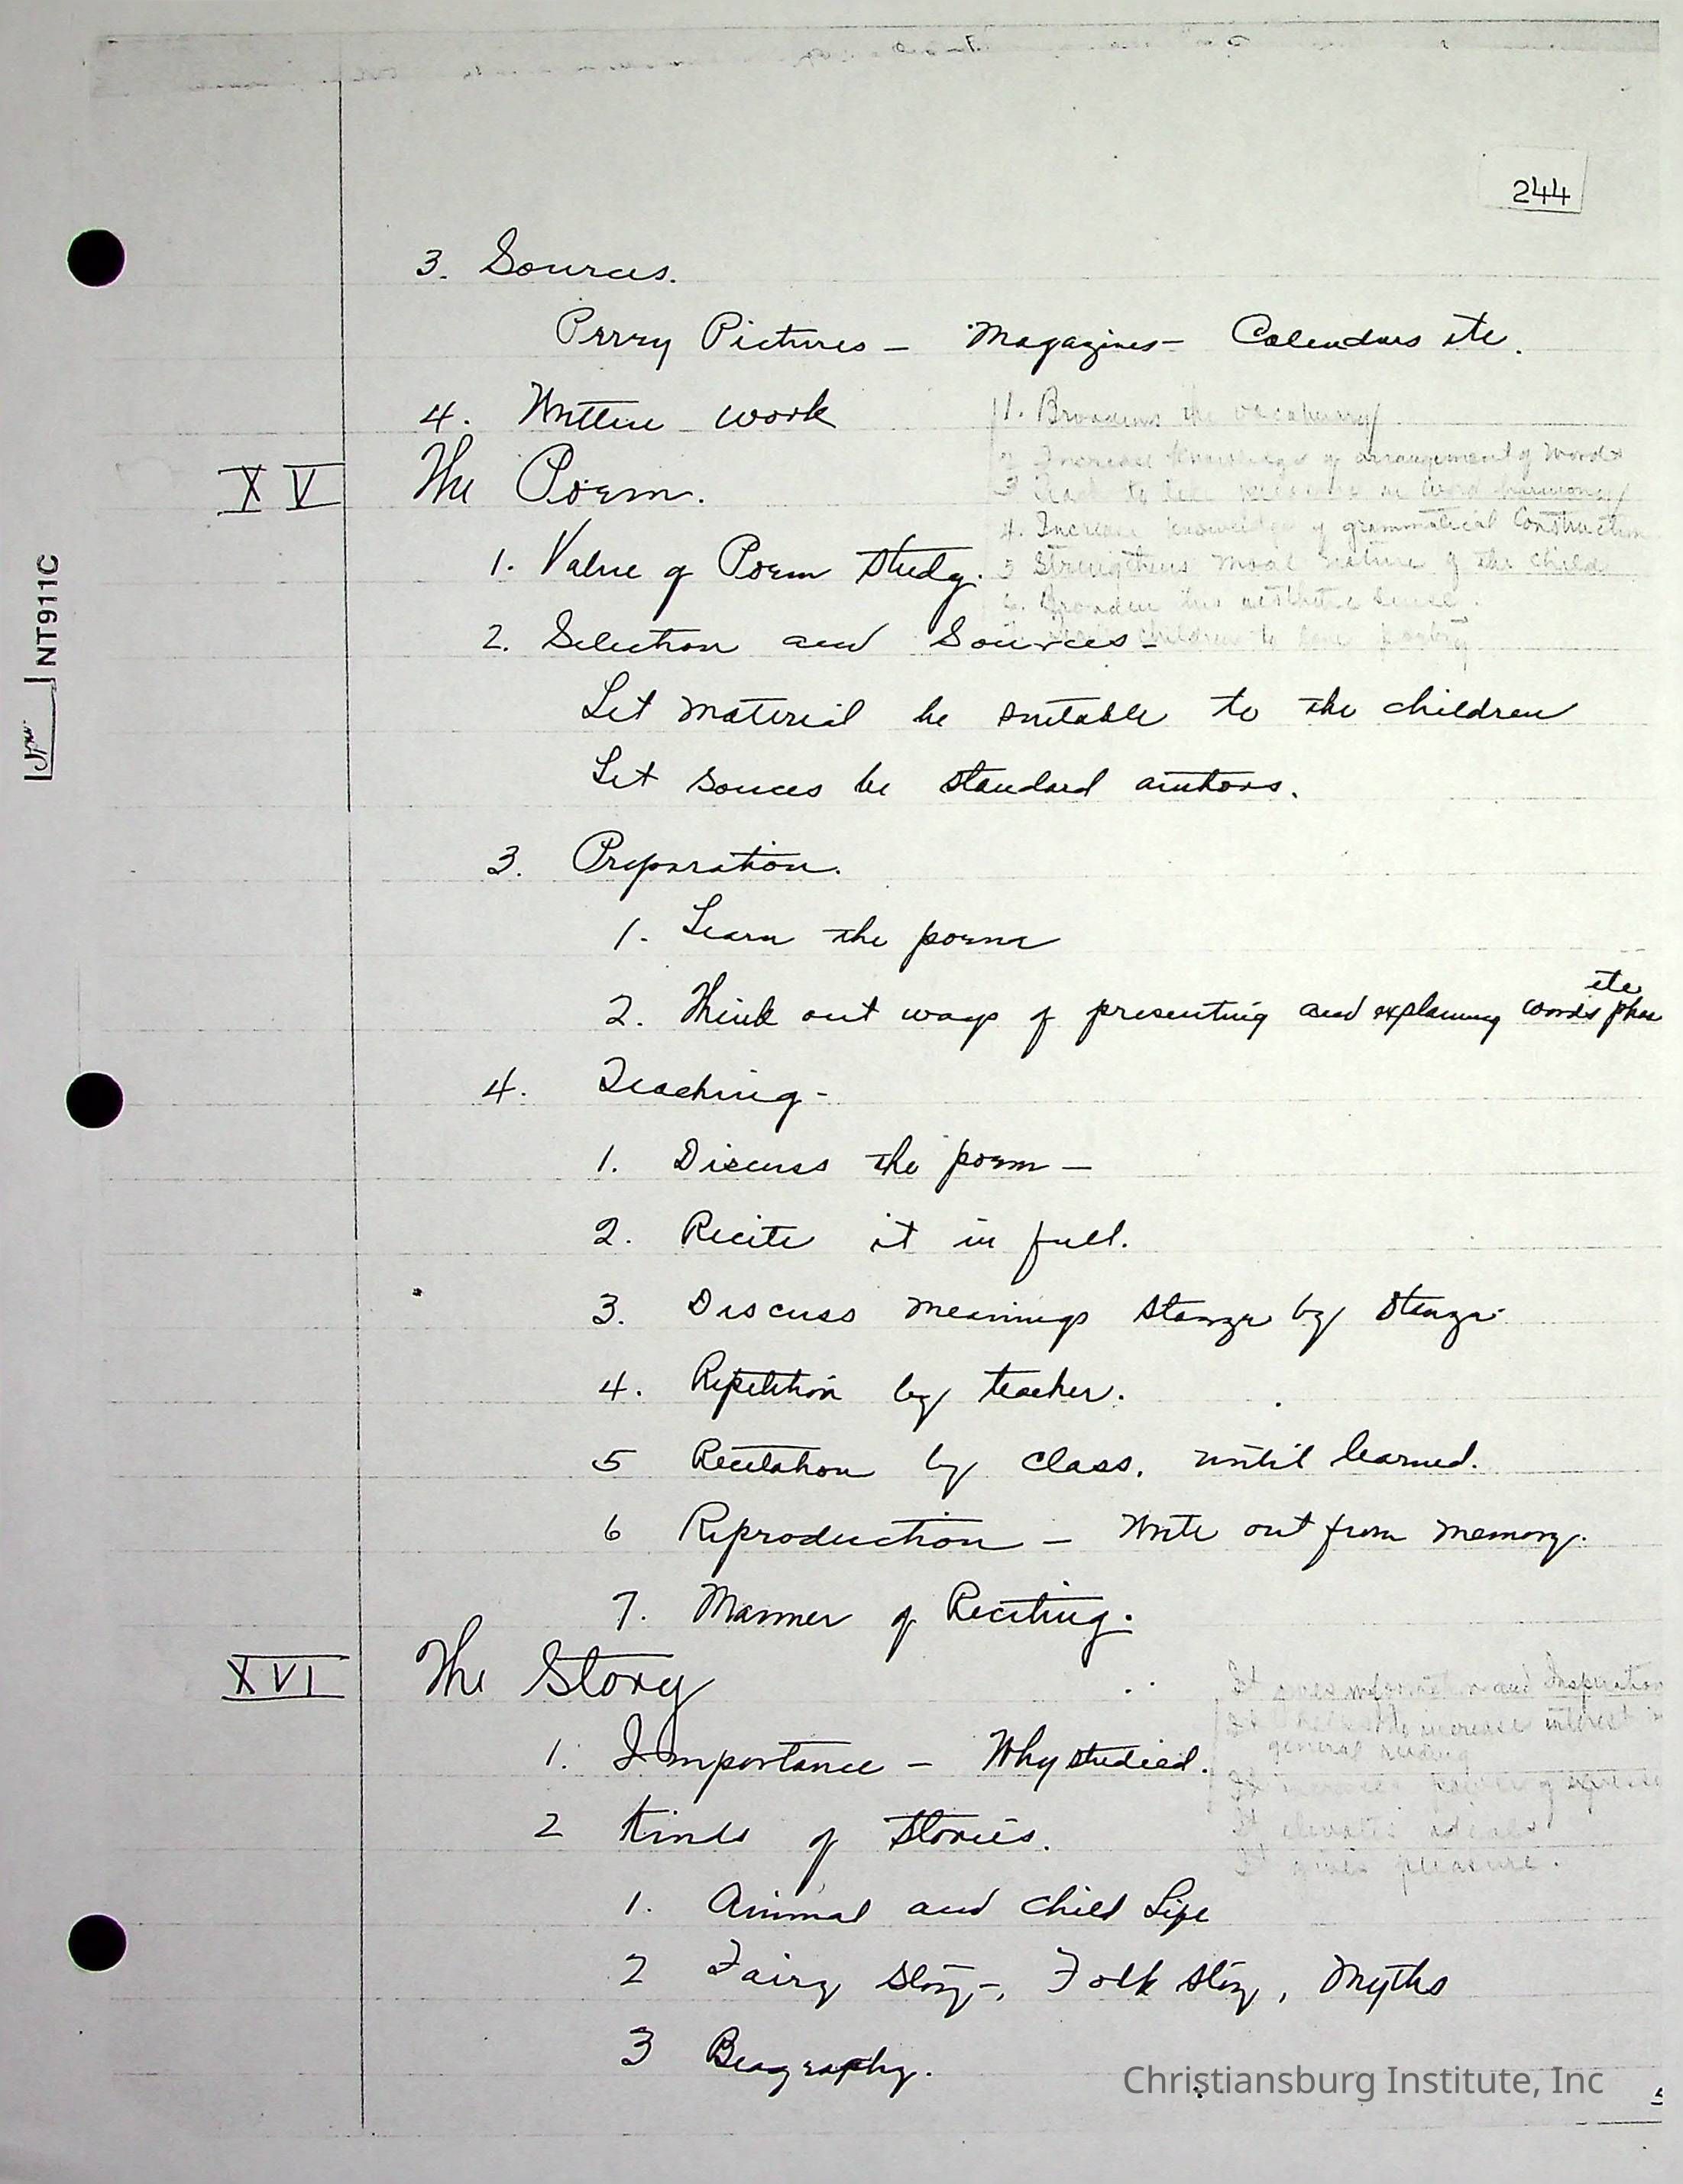 244
3. Sources.
Perry Pictures – Magazines – Calendars etc.
4. Written work
1. Broadens the vocabulary
2 Increase knowledge of arrangement of words
XV The Poem.
3 Teach to take pleasure in word harmony
4. Increase knowledge of grammatical Construction
1. Value of Poem Study.
5 Strengthens moral nature of the child
6. Broaden the aesthetic sense.
children to love poetry
2. Selection and Sources –
Let material be suitable to the children
Let souces be standard authors.
3. Preparation.
1. Learn the poem
2. Think out ways of presenting and explaining words phas etc
4. Teaching –
1. Discuss the poem –
2. Recite it in full.
3. Discuss meanings stanza by stanza.
4. Repetition by teacher.
5 Recitation by class, until learned.
6 Reproduction – Write out from memory.
7. Manner of Reciting.
XVI The Story
It gives information and Inspiration
It helps to increase interest in
general reading
1. Importance – Why studied.
It increases power of
It elevates ideals
It gives pleasure.
2 Kinds of Stories.
1. Animal and Child Life
2 Fairy Story –, Folk Story, Myths
3 Biography.
NT911C
Christiansburg Institute, Inc